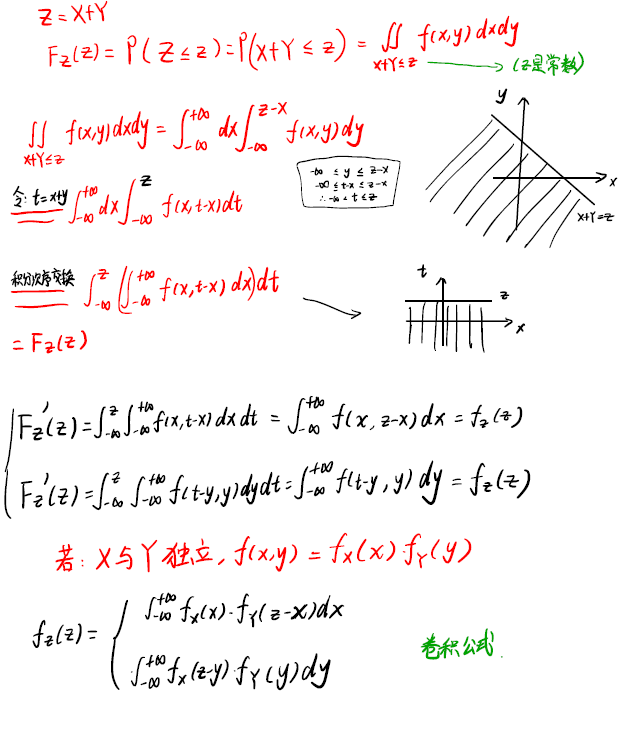 Z = X+Y
F_Z(z) = P(Z ≤ z) = P(X+Y ≤ z) = ∬_{X+Y≤z} f(x,y) dxdy → (z是常数)
∬_{X+Y≤z} f(x,y)dxdy = ∫_{-∞}^{+∞} dx ∫_{-∞}^{z-x} f(x,y)dy
-∞ ≤ y ≤ z-x
-∞ ≤ t-x ≤ z-x
∴ -∞ < t ≤ z
y
x
x+Y=z
令: t=x+y ∫_{-∞}^{+∞} dx ∫_{-∞}^{z} f(x,t-x)dt
积分次序交换 ∫_{-∞}^{z} (∫_{-∞}^{+∞} f(x,t-x) dx)dt
t
z
x
= F_Z(z)
F_Z'(z) = ∫_{-∞}^{z} ∫_{-∞}^{+∞} f(x,t-x) dx dt = ∫_{-∞}^{+∞} f(x, z-x) dx = f_z(z)
F_Z'(z) = ∫_{-∞}^{z} ∫_{-∞}^{+∞} f(t-y,y)dydt = ∫_{-∞}^{+∞} f(t-y, y) dy = f_z(z)
若: X与Y独立, f(x,y) = f_X(x)·f_Y(y)
f_z(z) = { ∫_{-∞}^{+∞} f_X(x)·f_Y(z-x)dx
∫_{-∞}^{+∞} f_X(z-y)·f_Y(y)dy
卷积公式.